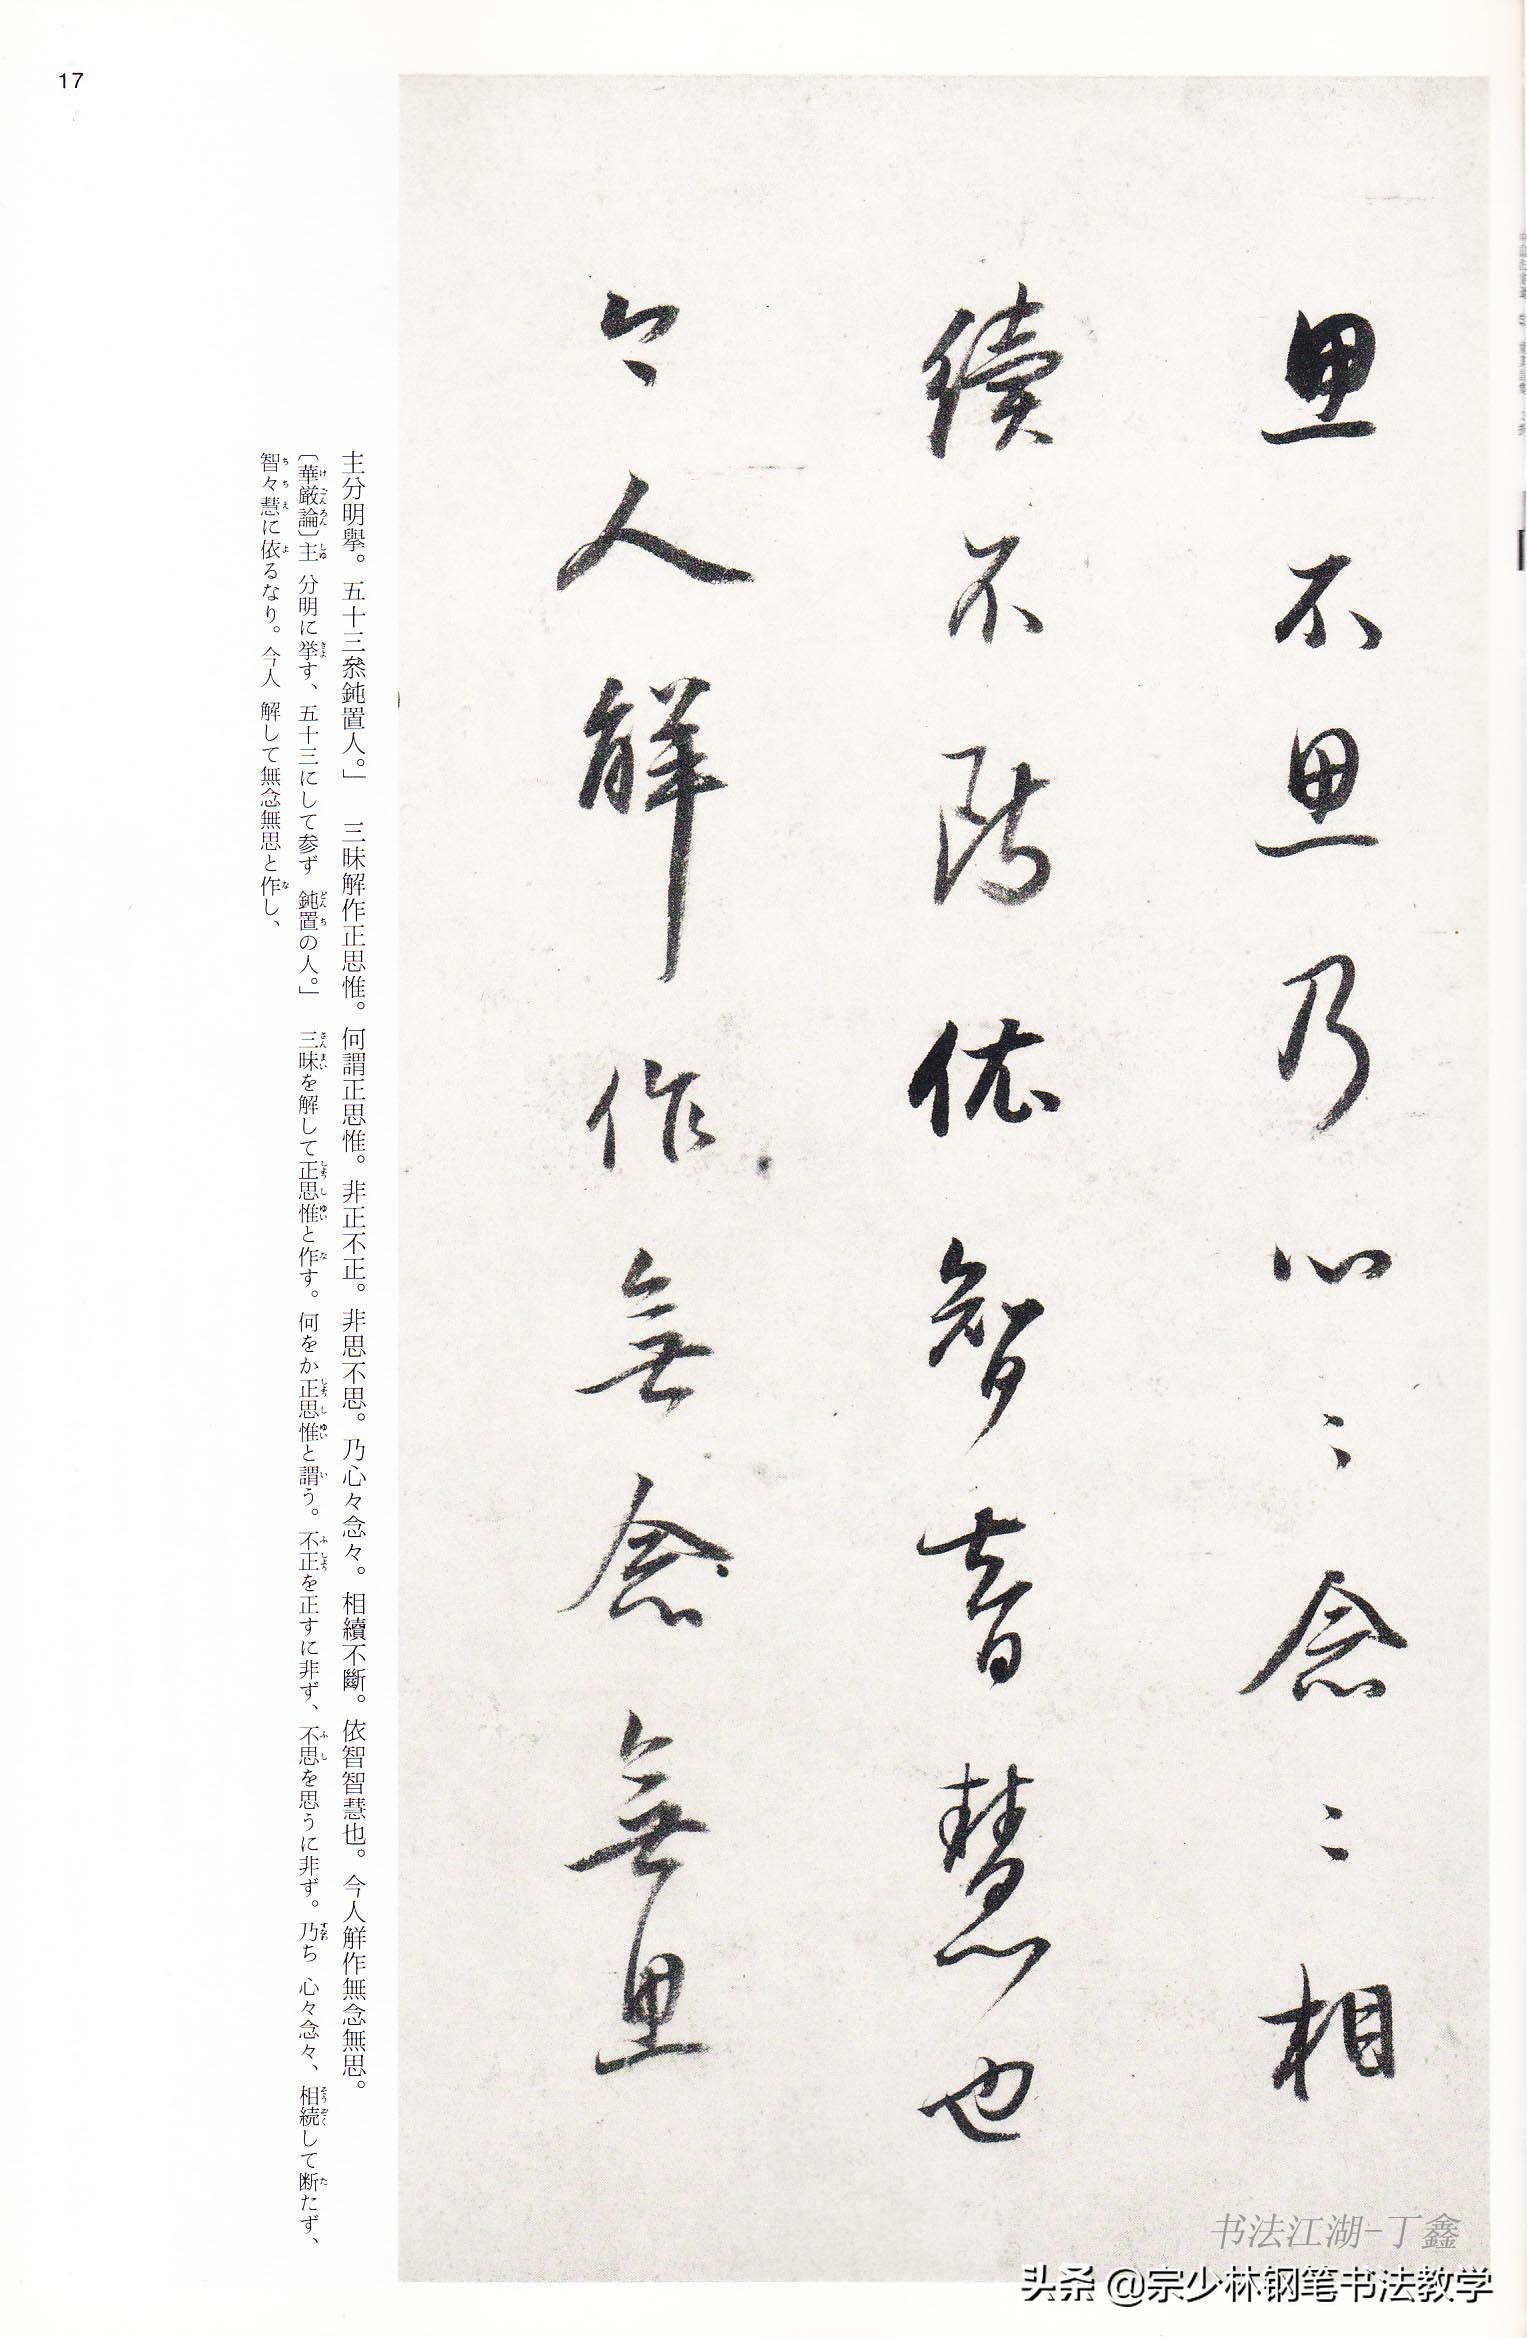 17
思不思乃心〻念〻相
續不断依智智慧也
今人解作無念無思
主分明擧。五十三叅鈍置人。」　三昧解作正思惟。何謂正思惟。非正不正。非思不思。乃心々念々。相續不斷。依智智慧也。今人觧作無念無思。
〔華厳論〕主　分明に挙す、五十三にして参ず　鈍置の人。」　三昧を解して正思惟と作す。何をか正思惟と謂う。不正を正すに非ず、不思を思うに非ず。乃ち　心々念々、相続して断たず、
智々慧に依るなり。今人　解して無念無思と作し、
书法江湖-丁鑫
头条 @宗少林钢笔书法教学